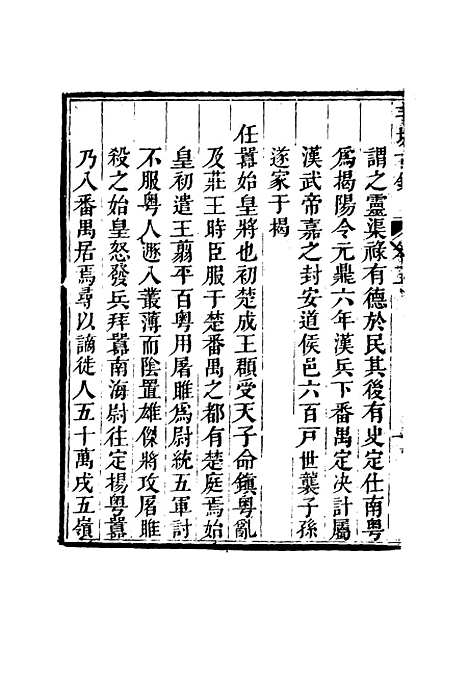 謂之靈渠祿有德於民其後有史定仕南粤
爲揭陽令元鼎六年漢兵下番禺定決計屬
漢武帝嘉之封安道侯邑六百戸世襲子孫
遂家于揭
任囂始皇將也初楚成王頵受天子命鎮粤亂
及莊王時臣服于楚番禺之都有楚庭焉始
皇初遣王翦平百粤用屠睢爲尉統五軍討
不服粤人遯入叢薄而陰置雄傑將攻屠睢
殺之始皇怒發兵拜囂南海尉往定揚粤囂
乃入番禺居焉尋以謫徙人五十萬戍五嶺